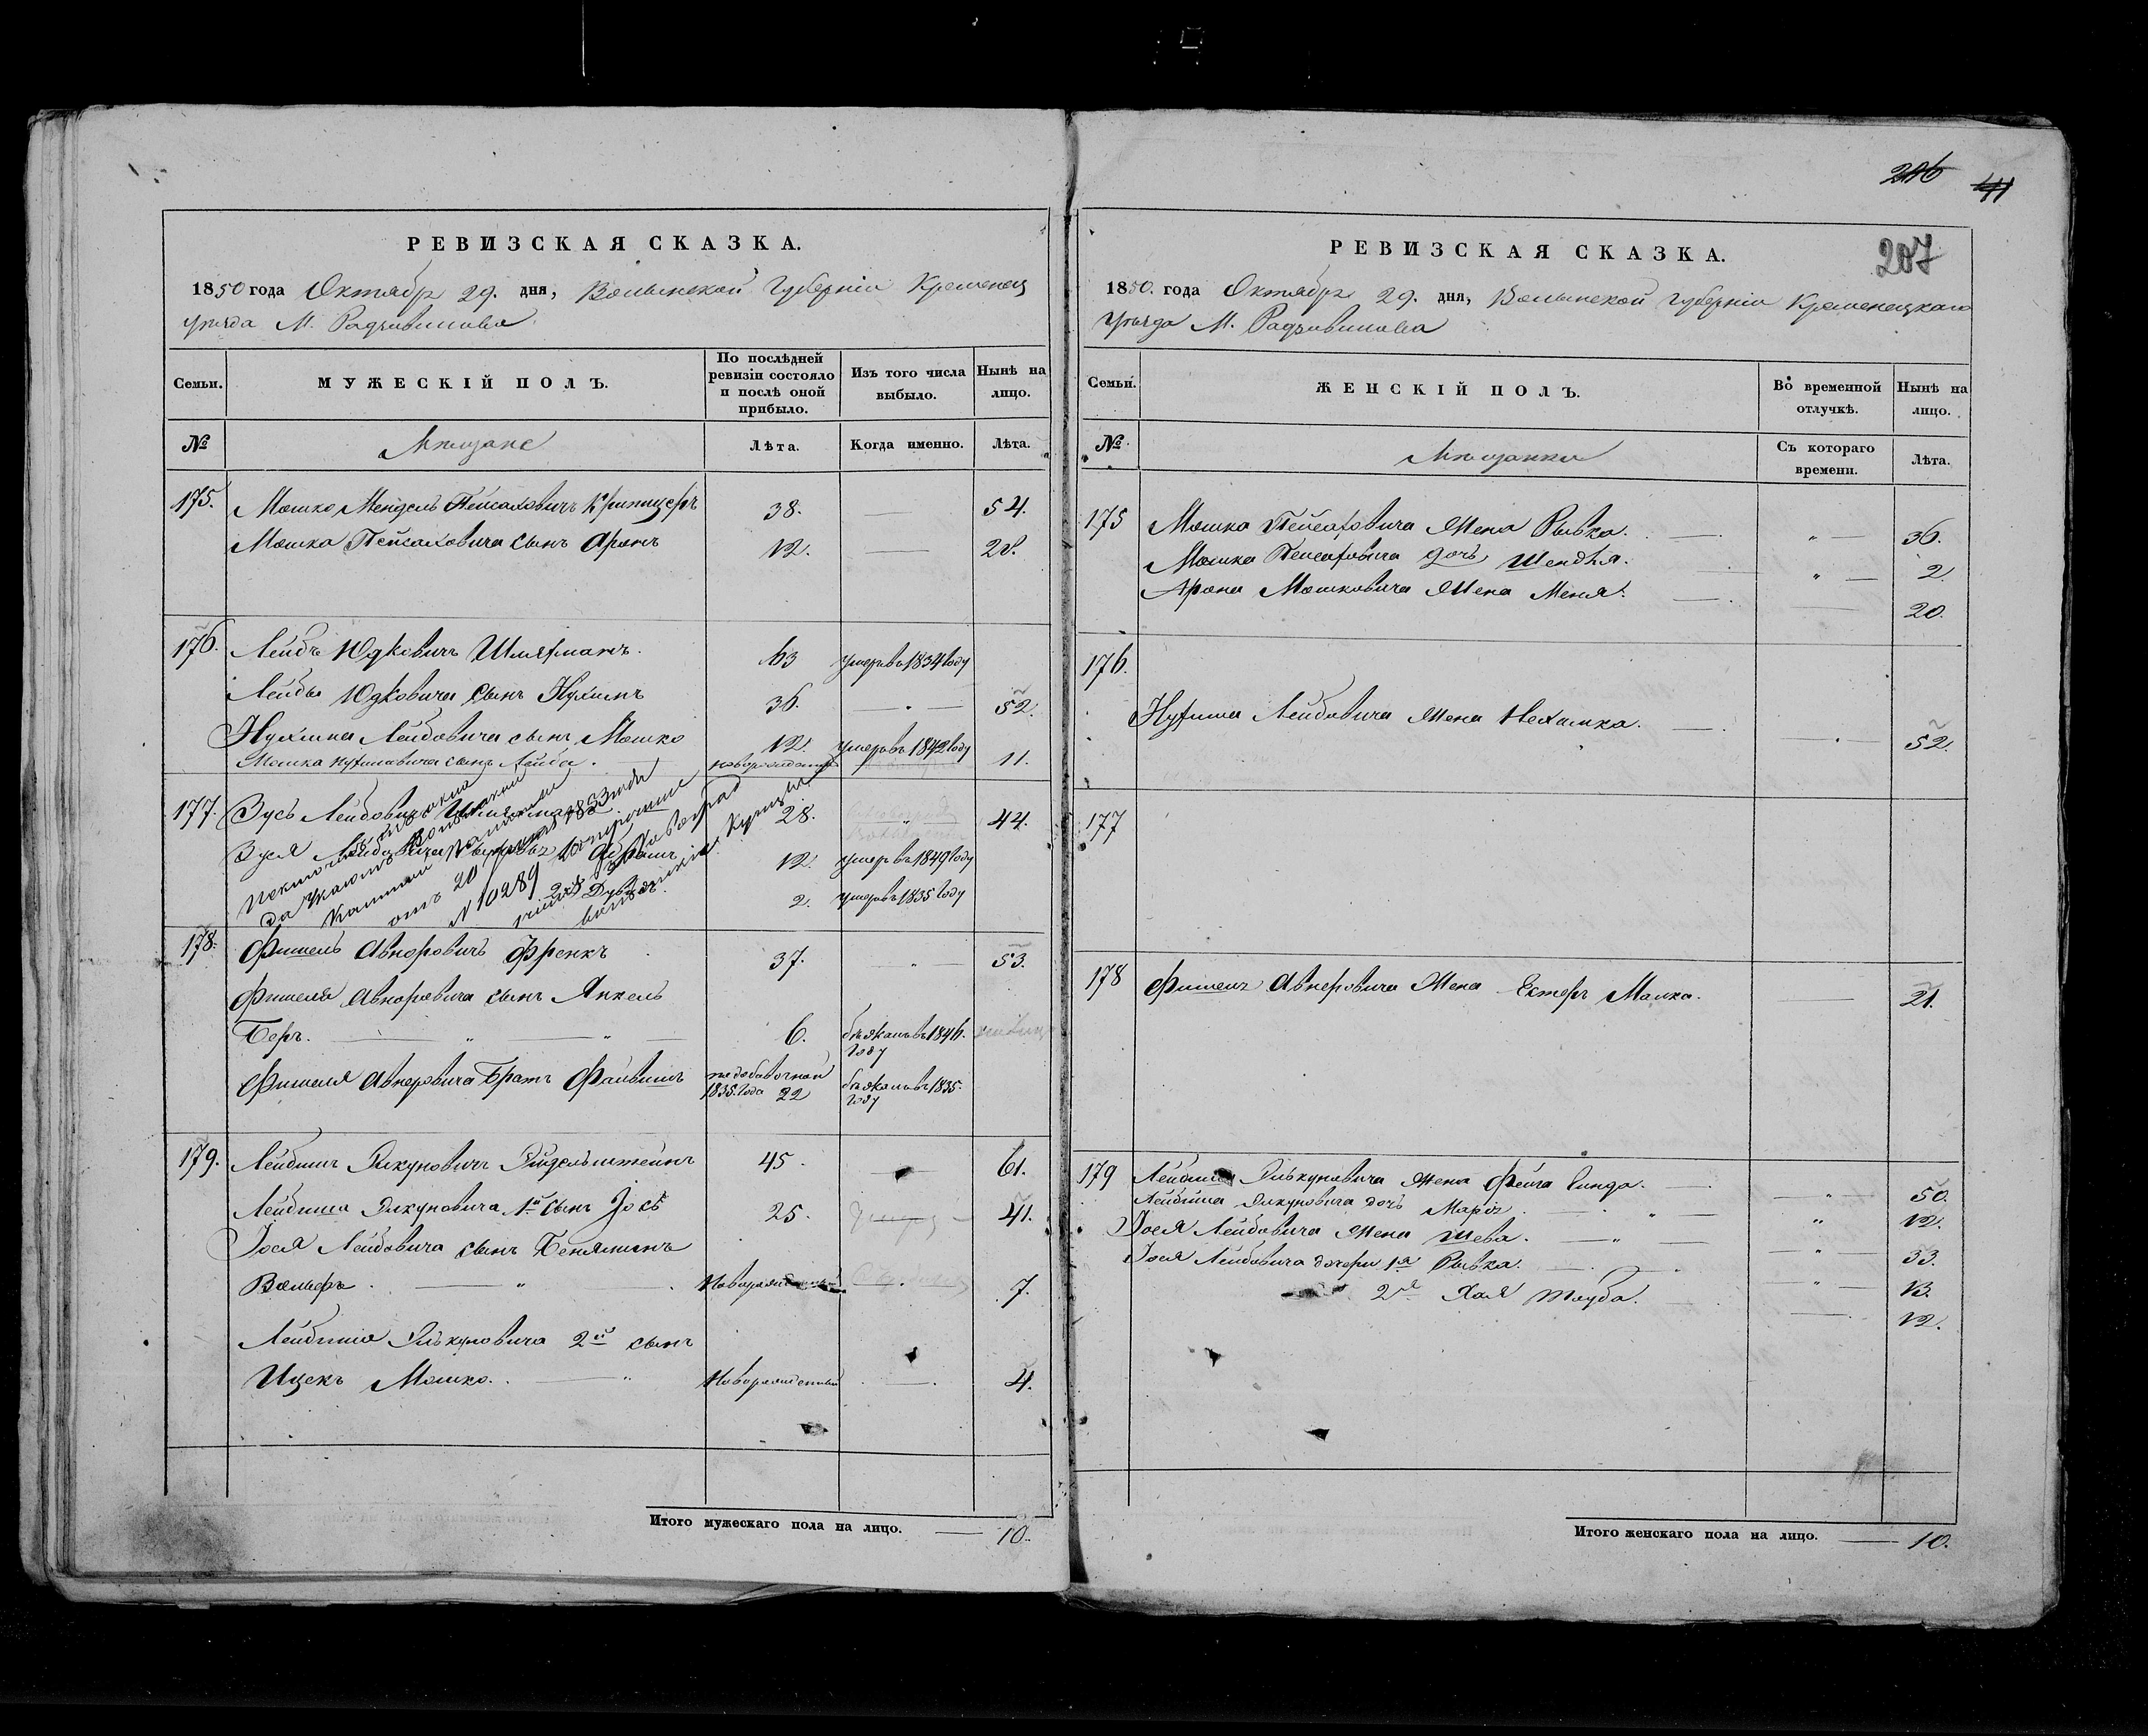 206 41
207
РЕВИЗСКАЯ СКАЗКА.
1850 года Октября 29. дня, Волынской Губерніи Кременец
уѣзда М. Радзивилова
Семьи.
МУЖЕСКІЙ ПОЛЪ.
По послѣдней ревизіи состояло и послѣ оной прибыло.
Изъ того числа выбыло.
Нынѣ на лицо.
№ Мѣщане Лѣта. Когда именно. Лѣта.
175. Мошко Мендель Пейсаховичъ 38. 54.
Мошка Пейсаховича сынъ Аронъ 12. 28.
176. Лейбъ Юдковичъ Шляхманъ. 63 умеръ въ 1834 году
Лейбы Юдковича сынъ Нухимъ 36. 52.
Нухима Лейбовича сынъ Мошко 12. умеръ въ 1842 году
Мошка Нухимовича сынъ Лейба. новорожденный 11.
177. Зусь Лейбовичъ 28. 44.
Зуся 12. умеръ въ 1849 году
2. умеръ въ 1835 году
отъ 20
№ 10289
178. Фишель Авноровичъ Френкъ 37. 53.
Фишеля Авноровича сынъ Янкель
Беръ. " " 6. бѣжалъ въ 1846. году
Фишеля Авнеровича Братъ Файвишъ по добавочной 1835 года 22 бѣжалъ въ 1835. году
179. Лейбишъ Элкуновичъ Эйдельштейнъ 45. 61.
Лейбиша Элкуновича 1й сынъ Іось 25. 41.
Іося Лейбовича сынъ Беняминъ
Вольфъ. " Новорожденный 7.
Лейбиша Элькуновича 2й сынъ
Ицекъ Мошко. " Новорожденный 4.
Итого мужескаго пола на лицо. 10.
РЕВИЗСКАЯ СКАЗКА.
1850. года Октября 29. дня, Волынской Губерніи Кременецкаго
Уѣзда М. Радзивилова
Семьи.
ЖЕНСКІЙ ПОЛЪ.
Во временной отлучкѣ.
Нынѣ на лицо.
№ Мѣщанки Съ котораго времени. Лѣта.
175 Мошка Пейсаховича Жена Рывка. " 36.
Мошка Пейсаховича дочь Шендля. " 2.
Арона Мошковича Жена Меня. 20.
176.
Нухима Лейбовича Жена Нехамка. 52.
177
178 Фишеля Авнеровича Жена Естеръ Малка. 21.
179 Лейбиша Элькуновича Жена Фейга Линда. " 50.
Лейбиша Элкуновича дочь Марія " 12.
Іося Лейбовича Жена Шева. " 33.
Іося Лейбовича дочери 1я Рывка. " 13.
2я Хая Тауба. 12.
Итого женскаго пола на лицо. 10.